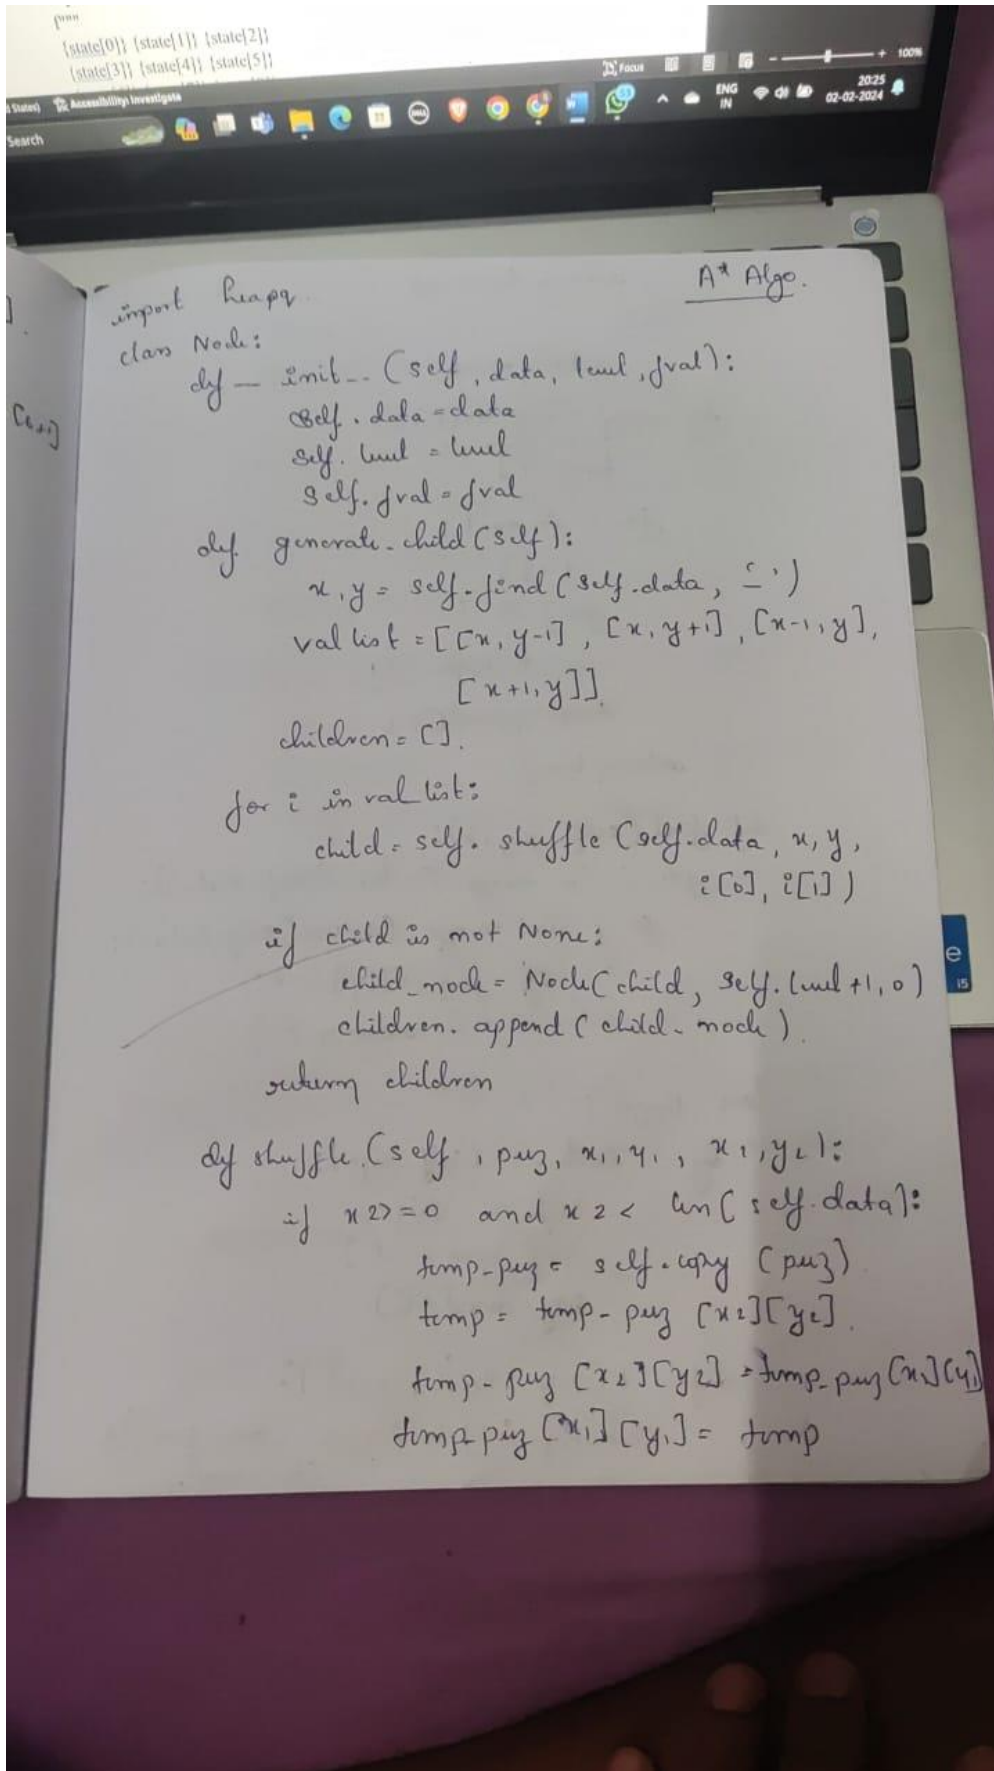 {state[0]} {state[1]} {state[2]}
{state[3]} {state[4]} {state[5]}
Focus
100%
Accessibility: Investigate
Search
ENG
IN
20:25
02-02-2024
A* Algo.
import heapq.
class Node:
def __init__(self, data, level, fval):
self.data=data
self.level = level
self.fval = fval
def generate_child(self):
x, y = self.find(self.data, '_')
val list = [[x, y-1], [x, y+1], [x-1, y],
[x+1, y]].
children = [].
for i in val_list:
child = self. shuffle (self.data, x, y,
i[0], i[1])
if child is not None:
child_node = Node(child, self.level +1, 0)
children. append (child_node).
return children
def shuffle (self, puz, x1, y1, x2, y2):
if x2>=0 and x2 < len(self.data):
temp_puz = self.copy (puz)
temp = temp_puz [x2][y2].
temp_puz [x2][y2] = temp_puz[x1][y1]
temp_puz [x1][y1] = temp
e
i5